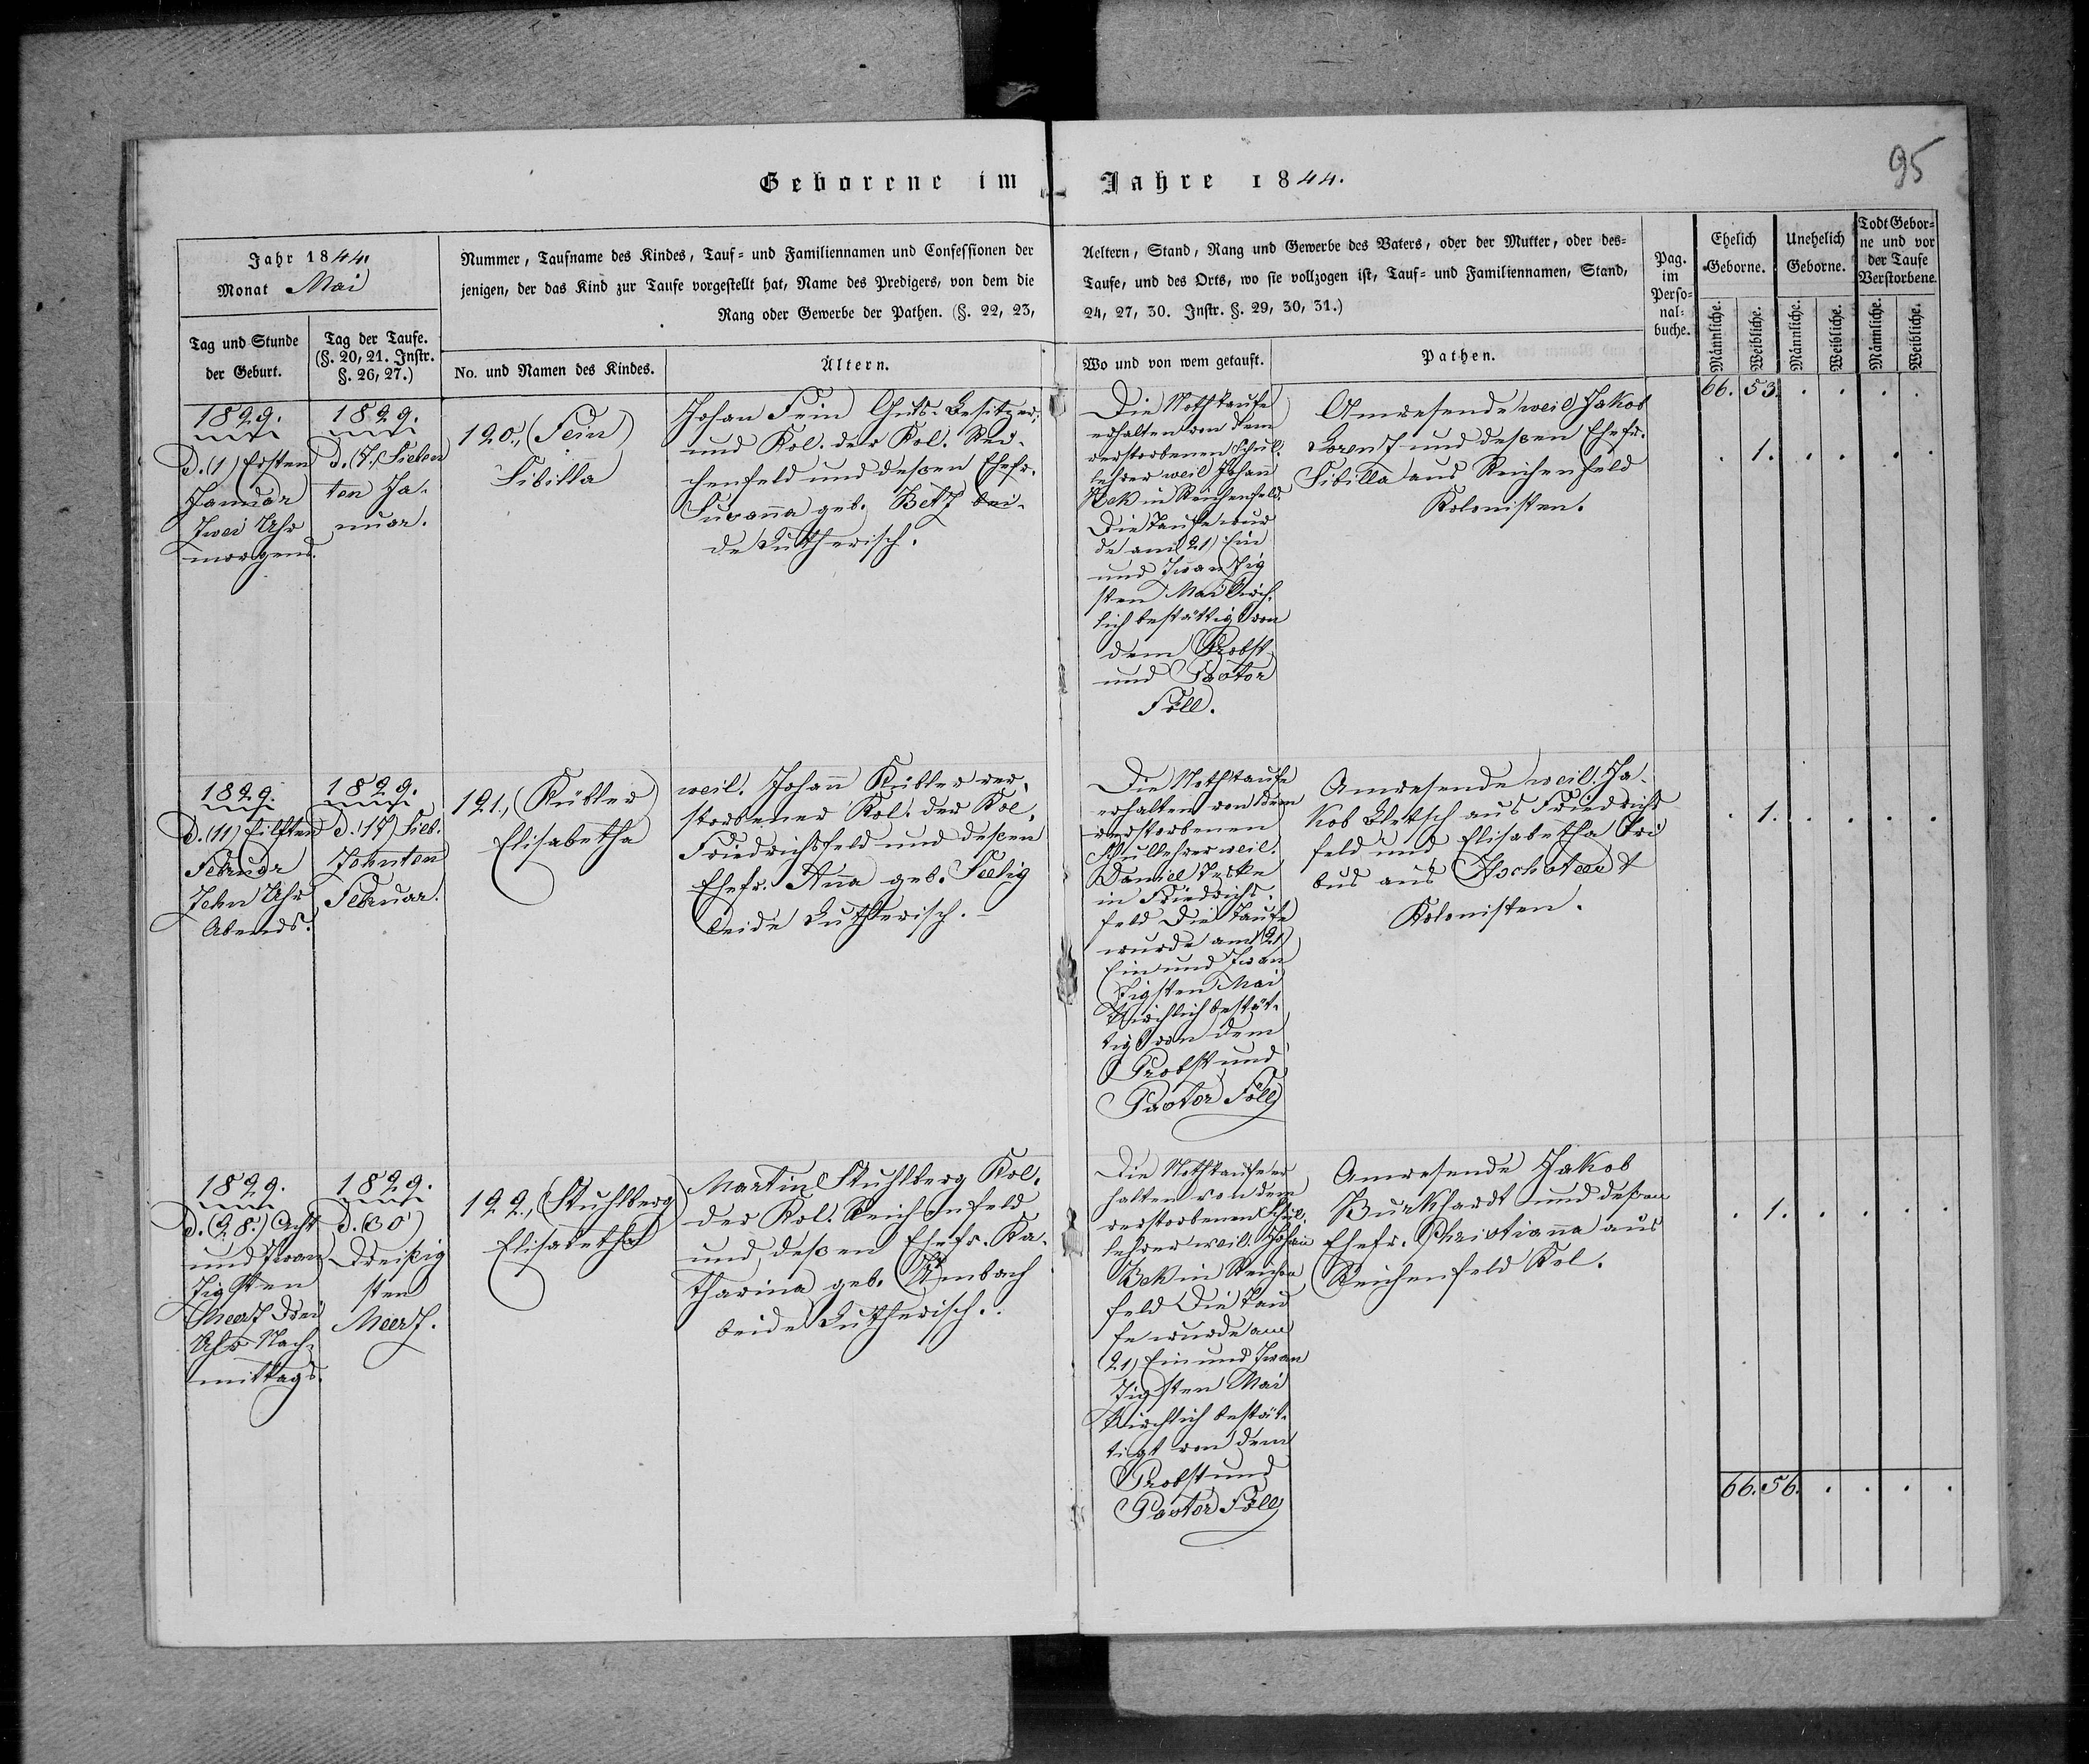 Geborene im Jahre 1844.
95
Jahr 1844.
Monat Mai
Nummer, Taufname des Kindes, Tauf- und Familiennamen und Confessionen der
jenigen, der das Kind zur Taufe vorgestellt hat, Name des Predigers, von dem die
Rang oder Gewerbe der Pathen. (§. 22, 23,
Aeltern, Stand, Rang und Gewerbe des Vaters, oder der Mutter, oder des-
Taufe, und des Orts, wo sie vollzogen ist, Tauf- und Familiennamen, Stand,
24, 27, 30. Instr. §. 29, 30, 31.)
Pag.
im
Perso-
nal-
buche.
Ehelich
Geborne.
Unehelich
Geborne.
Todt Gebor-
ne und vor
der Taufe
Verstorbene.
Männliche.
Weibliche.
Männliche.
Weibliche.
Männliche.
Weibliche.
Tag und Stunde
der Geburt.
Tag der Taufe.
(§. 20, 21. Instr.
§. 26, 27.)
No. und Namen des Kindes.
Ältern.
Wo und von wem getauft.
Pathen.
66. 53. . . . .
1829.
D. (1) Ersten
Januar
Zwei Uhr
morgens.
1829.
D. (7.) Sieben
ten Ja-
nuar.
120., (Fein)
Sibilla
Johan Fein Guts-Besitzer,
und Kol. der Kol. Rei-
chenfeld und dessen Ehefr.
Susanna geb. Betz bei-
de Lutherisch.
Die Nothtaufe
erhalten von dem
verstorbenen Schul-
lehrer weil Johann
Bek in Reichenfeld.
Die Taufe wur
de am (21) Ein
und Zwanzig
sten Mai Kirch-
lich bestättigt von
dem Probst
und Pastor
Föll.
Anwesende weil Jakob
Lorenz und dessen Ehefr.
Sibilla aus Reichenfeld
Kolonisten.
. 1. . . . .
1829.
D. (11) Eilften
Februar
Zehn Uhr
Abends.
1829.
D. (17) Sieb.
Zehnten
Februar.
121., (Kübler)
Elisabetha
weil. Johann Kübler ver-
storbener Kol. der Kol.
Friedrichsfeld und dessen
Ehefr. Anna geb. Seelig
beide Lutherisch.
Die Nothtaufe
erhalten von dem
verstorbenen
Schullehrer weil.
Daniel
in Friedrichs-
feld Die Taufe
wurde am (21)
Ein und Zwan
zigsten Mai
Kirchlich bestät-
tigt von dem
Probst und
Pastor Föll
Anwesende weil. Ja-
kob Bletsch aus Friedrichs
feld und Elisabetha Tri
bus aus
Kolonisten.
. 1. . . . .
1829.
D. (28.) Acht
und Zwan
zigsten
Meerz Drei
Uhr Nach-
mittags.
1829.
D. (30)
Dreißig
sten
Meerz.
122., (Stuhlberg)
Elisabetha
Martin Stuhlberg Kol.
der Kol. Reichenfeld
und dessen Ehefr. Ka-
tharina geb. Umbach
beide Lutherisch.
Die Nothtaufe er
halten von dem
verstorbenen Schul-
lehrer weil. Johann
Bek in Reichen
feld Die Tau
fe wurde am
(21) Ein und Zwan
zigsten Mai
Kirchlich bestät-
tigt von dem
Probst und
Pastor Föll
Anwesende Jakob
Burkhardt und dessen
Ehefr. Christianna aus
Reichenfeld Kol.
. 1. . . . .
66. 56. . . . .